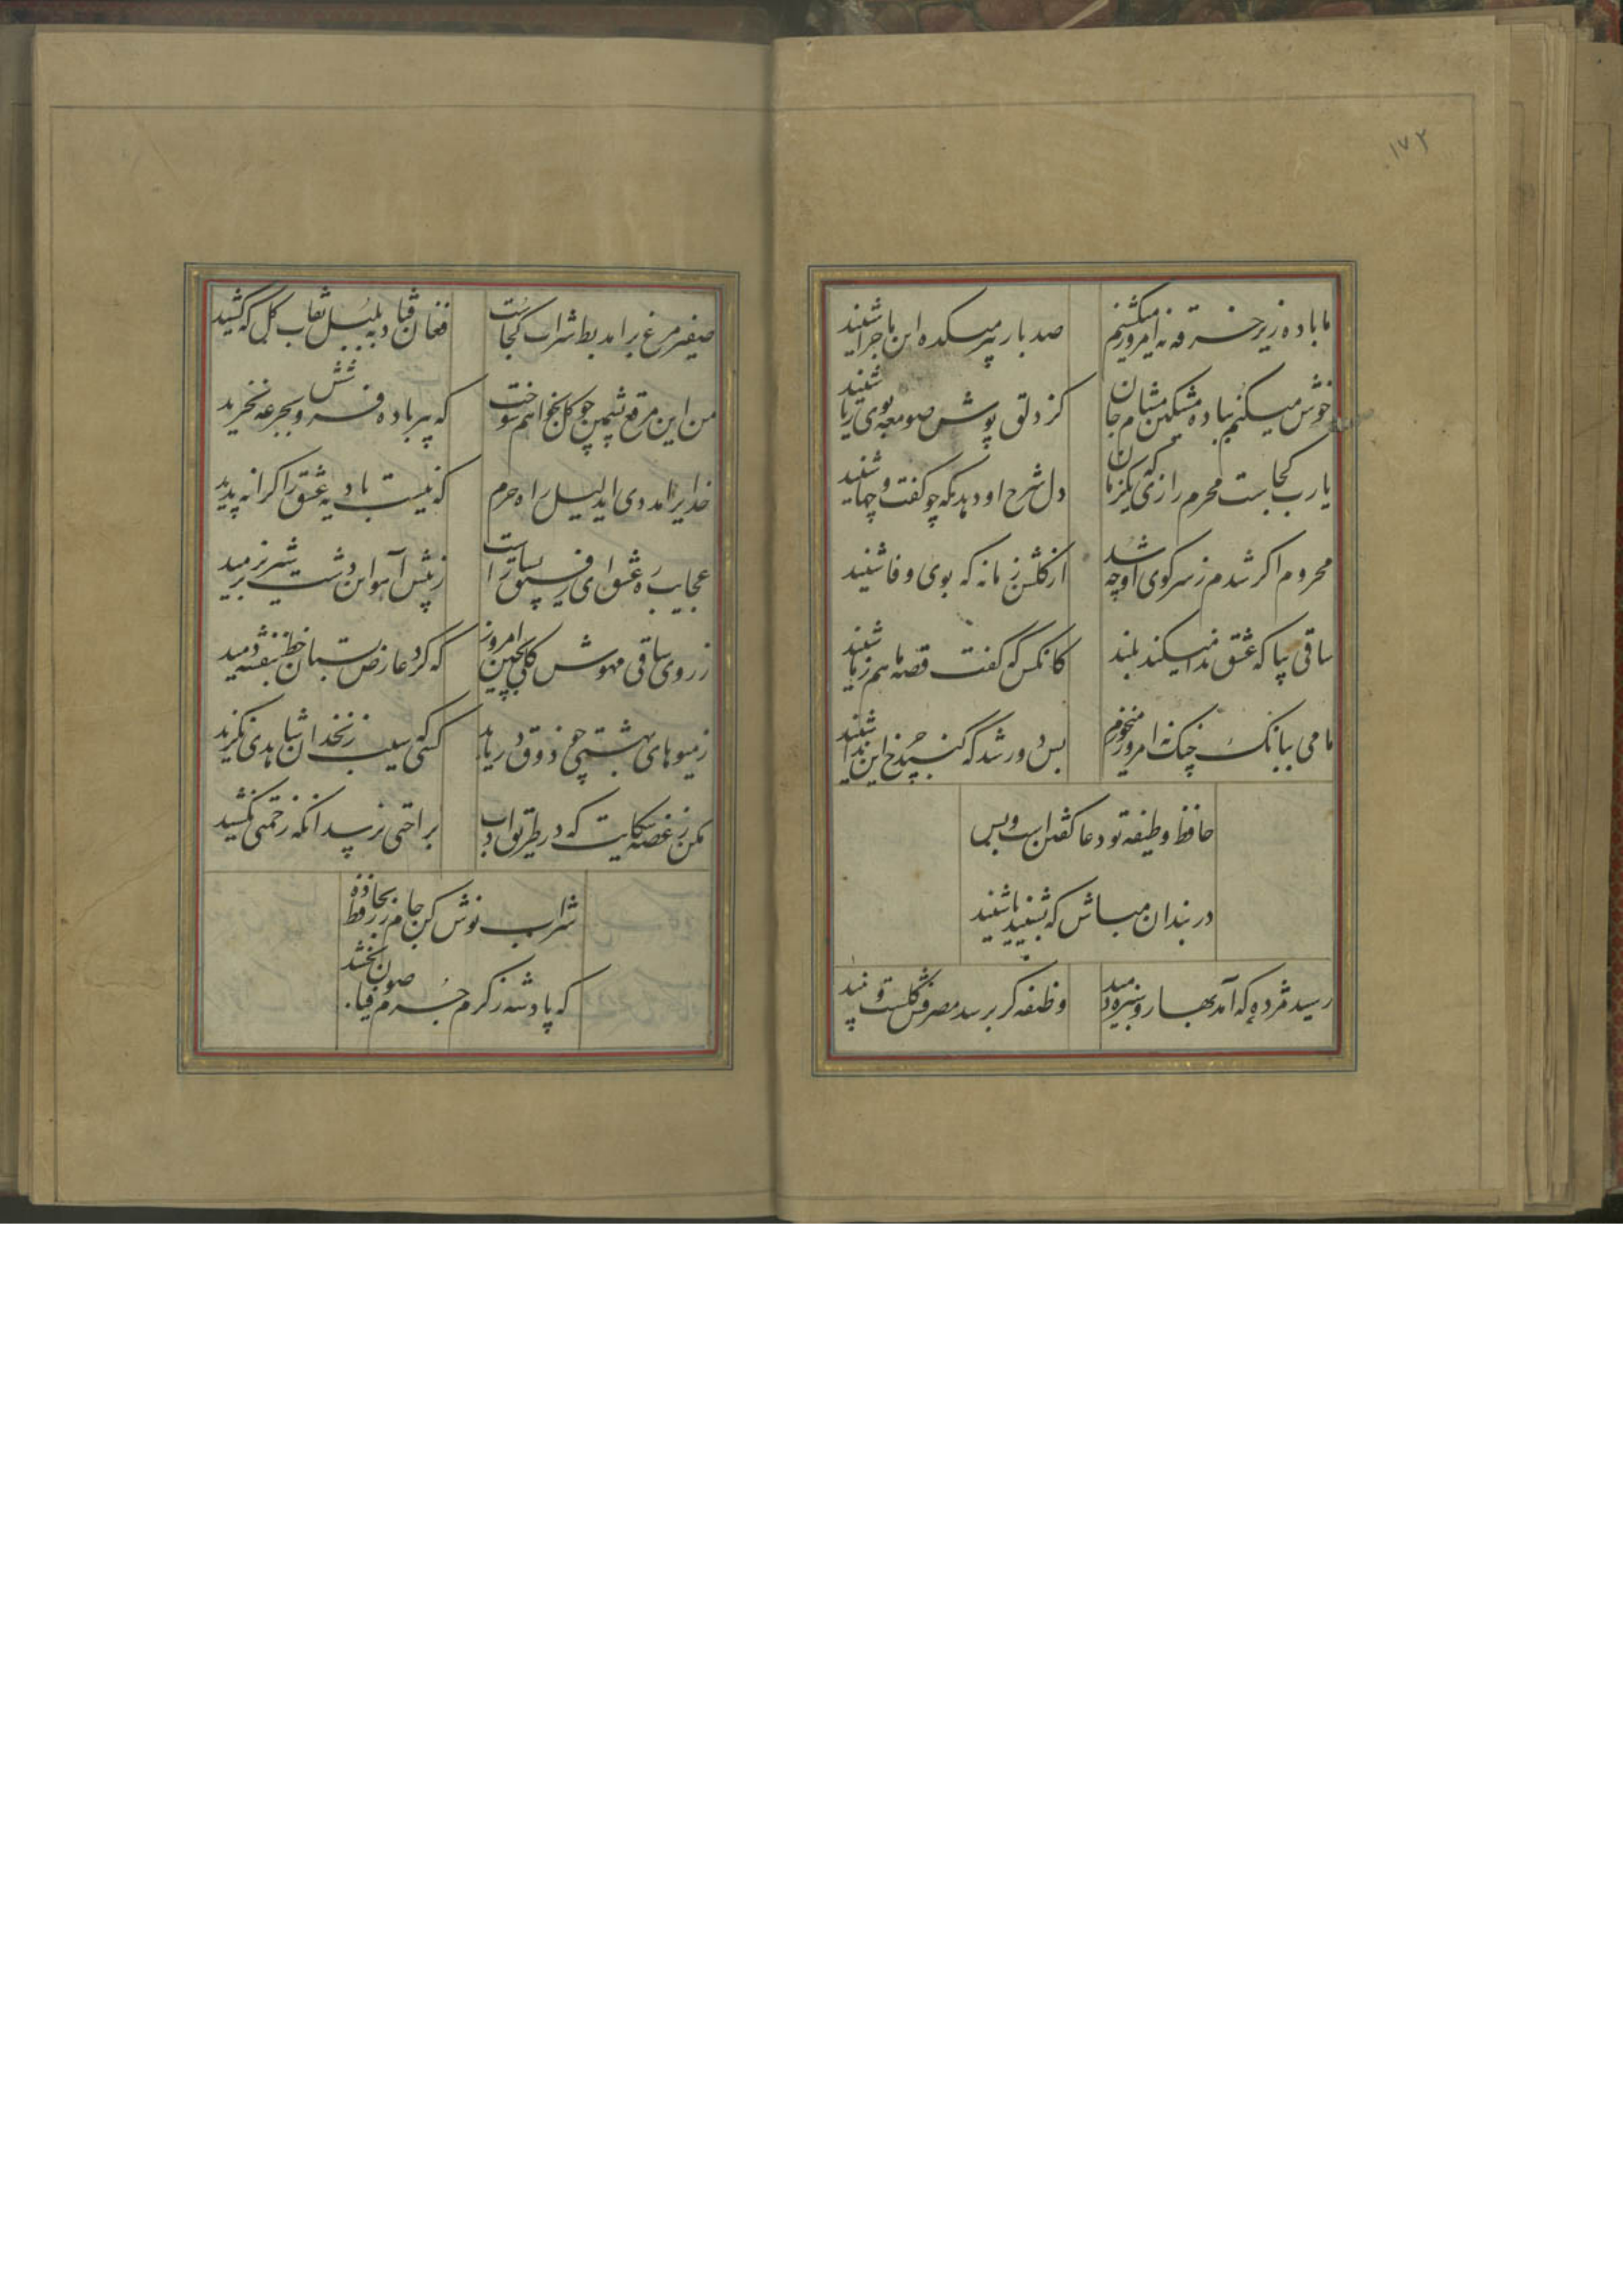 ۱۷۲
ما باده زیر خرقه نه امروز میکشیم صد بار پیر میکده این ماجرا شنید
خوش میکنم بباده مشکین مشام جان کز دلق پوش صومعه بوی ریا شنید
یا رب کجاست محرم رازی که یکزمان دل شرح او دهد که چو گفت و چها شنید
محروم اگر شدم ز سر کوی او چه شد از گلشن زمانه که بوی وفا شنید
ساقی بیا که عشق ندا میکند بلند کانکس که گفت قصه ما هم ز ما شنید
ما می ببانک چنک نه امروز میخوریم بس دور شد که گنبد چرخ این ندا شنید
حافظ وظیفه تو دعا گفتن است و بس
در بند ان مباش که نشنید یا شنید
رسید مژده که آمد بهار و سبزه دمید وظیفه گر برسد مصرفش گلست و نبید
صفیر مرغ برامد بط شراب کجاست فغان فتاد به بلبل نقاب گل که کشید
من این مرقع پشمین چو گل بخواهم سوخت که پیر باده فروشش بجرعه نخرید
خدایرا مددی ای دلیل راه حرم که نیست بادیه عشق را کرانه پدید
عجایب ره عشق ای رفیق بسیار است ز پیش آهو این دشت شیر نر برمید
ز روی ساقی مهوش گلی بچین امروز که گرد عارض بستان خط بنفشه دمید
ز میوهای بهشتی چه ذوق دریابد کسی که سیب زنخدان شاهدی نگزید
مکن ز غصه شکایت که در طریق ادب براحتی نرسید انکه زحمتی نکشید
شراب نوش کن جام زر بحافظ ده
که پادشه ز کرم جرم صوفیان بخشد